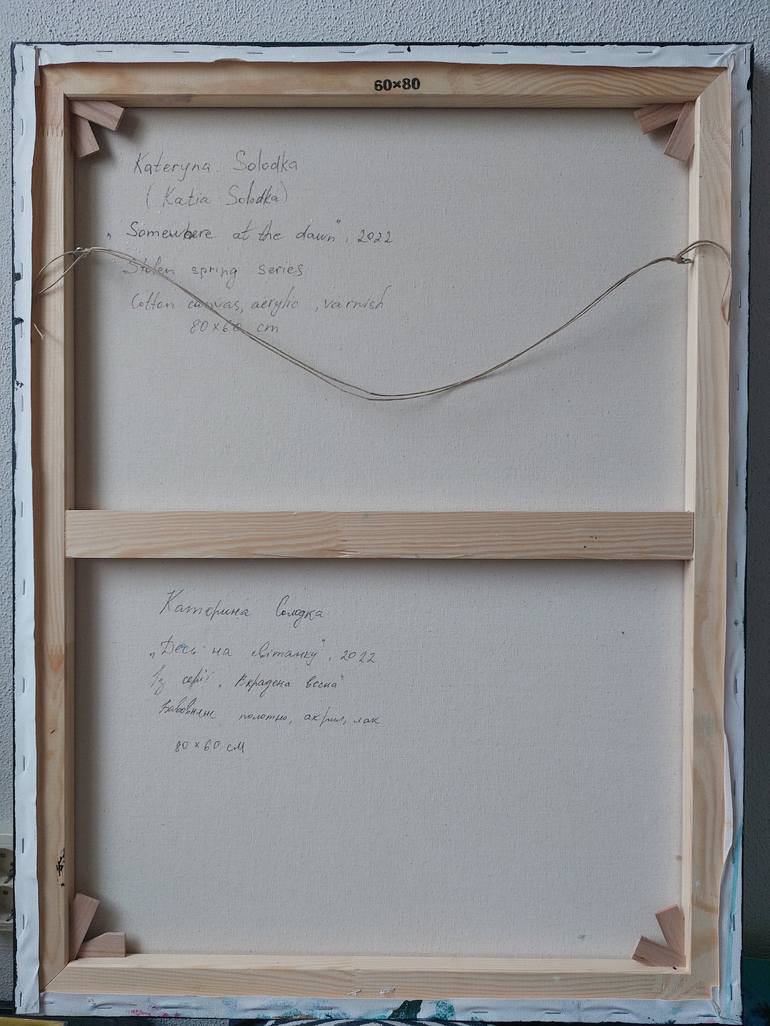 60×80
Kateryna Solodka
(Katia Solodka)
„Somewhere at the dawn", 2022
Stolen spring series
Cotton canvas, acrylic, varnish
80×60 cm
Катерина Солодка
„Десь на світанку", 2022
Із серії „Вкрадена весна"
Бавовняне полотно, акрил, лак
80×60 см